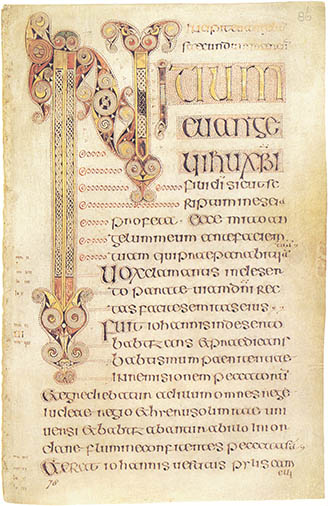 86
INITIUM
euange
lii ihu xpi
fili di sicut sc
riptum in esei
profeta ecce mitto an
gelum meum ante faciem
tuam qui praeparabit ui
uox clamantis in deser
to parate uiam dni rec
tas facite semitas eius
Fuit iohannis in deserto
babtizans et praedicans
babtismum paenitentiae
in remisionem peccatorum
et egrediebatur ad illum omnes rege
iudeae regio et hierusolimitae uni
uersi et babtizabantur ab illo in ior
dane flumine confitentes peccata sua
et erat iohannis uestitus pylis cam
elli
78